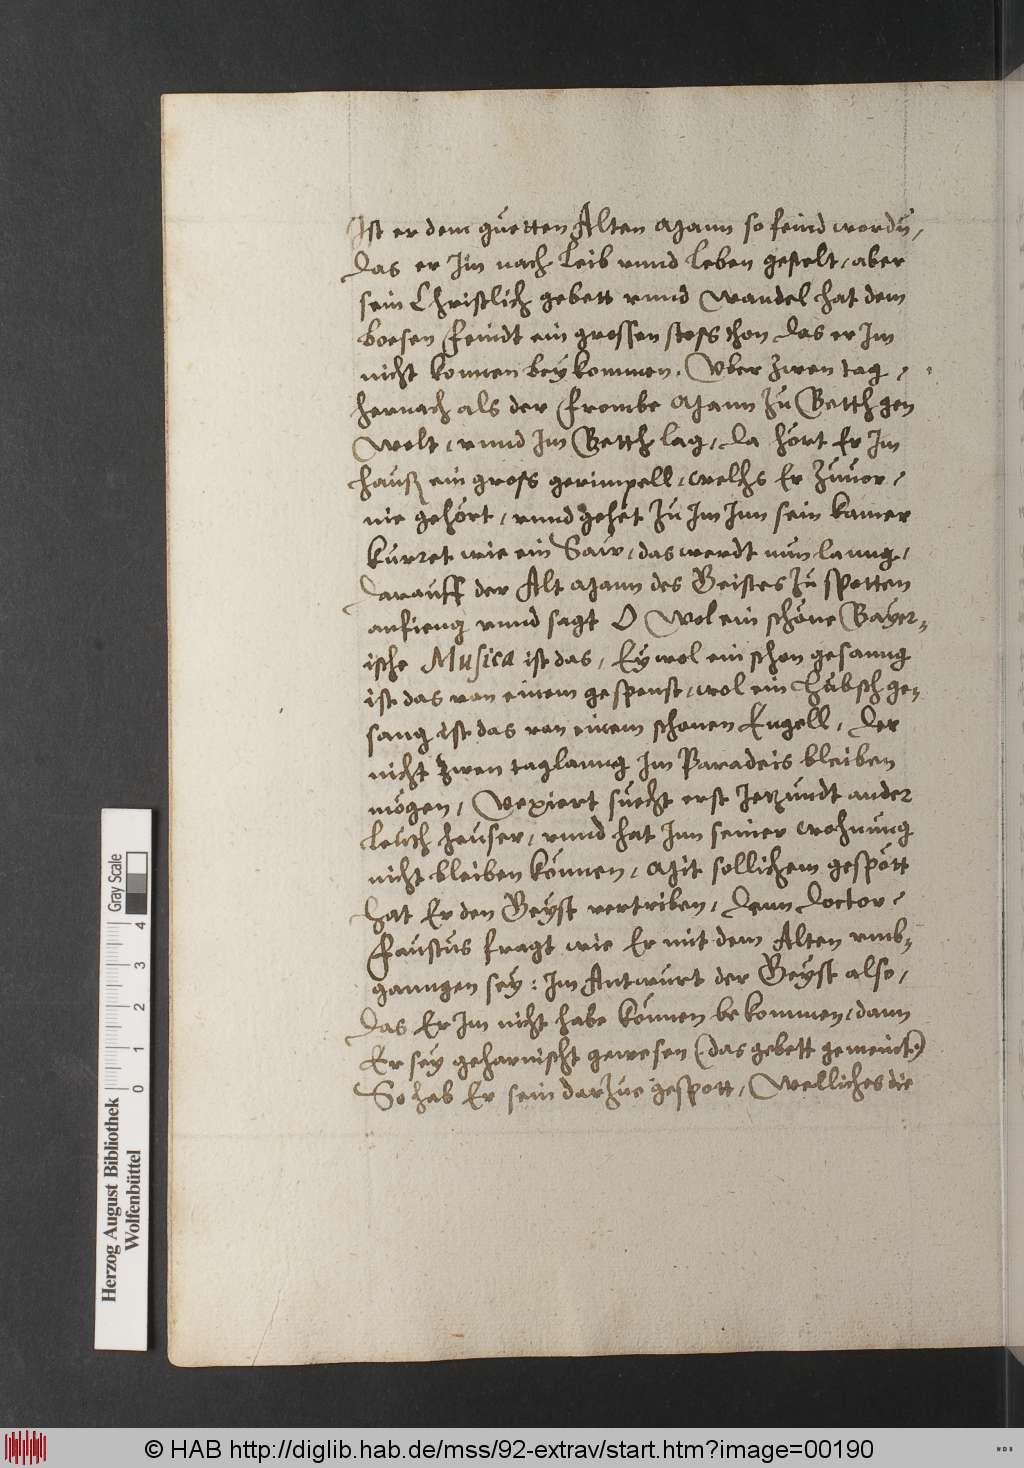 Ist er dem guetten Alten Mann so feind wordn,
das er Im nach Leib vnnd Leben gestelt, aber
sein Christlich gebett vnnd Wandel hat dem
boesen feindt ein grossen stoss thon das er Im
nicht konnen beykommen. Vber zwen tag,
hernach als der frombe Mann zu Betth gen
Wolt, vnnd Im Betth lag, da hört Er Im
hauß ein gross gerimpell, welchs Er zuuor,
nie gehört, vnnd gehet zu Im Inn sein kamer
kurret wie ein Saw, das werdt nun lanng,
darauff der Alt Mann des Geistes zu spotten
anfieng vnnd sagt O Wol ein schöne Bayer-
ische Musica ist das, Ey wol ein schon gesanng
ist das von einem gespenst, wol ein hübsch ge-
sang ist das von einem schonen Engell, der
nicht zwen taglanng Im Paradeis bleiben
mögen, Vexiert sucht erst Jetzundt ander
leuth heuser, vnnd hat Inn seiner wohnung
nicht bleiben können, Mit sollichem gespött
hat Er den Geyst vertriben, denn Doctor,
Faustus fragt wie Er mit dem Alten vmb-
ganngen sey: Im Antwurt der Geyst also,
das Er Im nicht habe können bekommen, dann
Er sey geharnischt gewesen (das gebett gemeinet)
So hab Er sein darzue gespott, Welliches die
Herzog August Bibliothek
Wolfenbüttel
0 1 2 3 4
Gray Scale
© HAB http://diglib.hab.de/mss/92-extrav/start.htm?image=00190
WDB